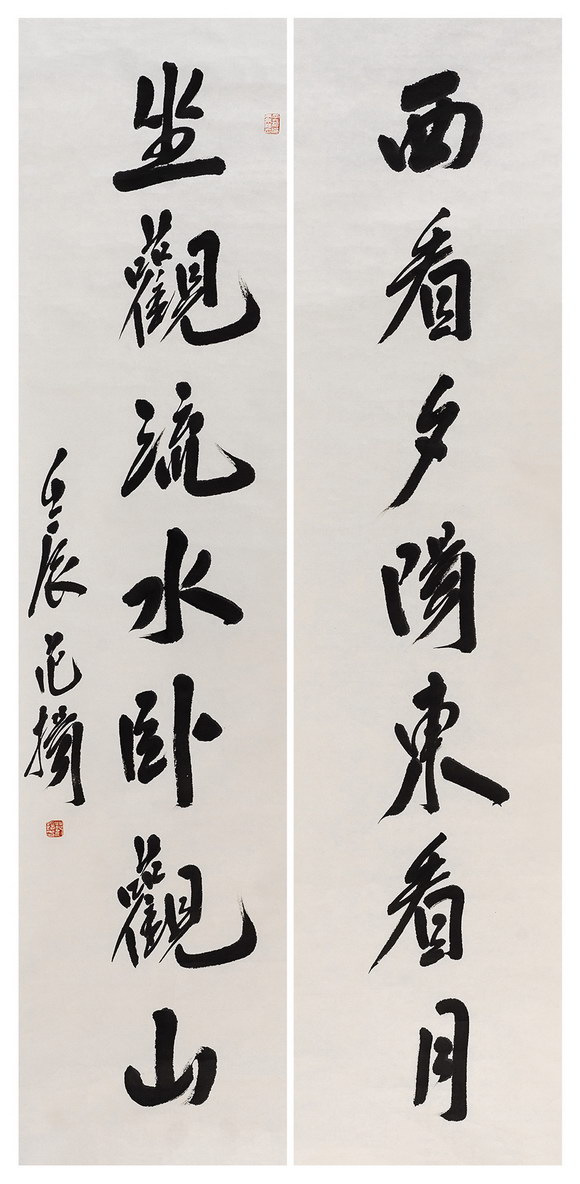 西看夕陽東看月
坐觀流水卧觀山
壬辰范擕